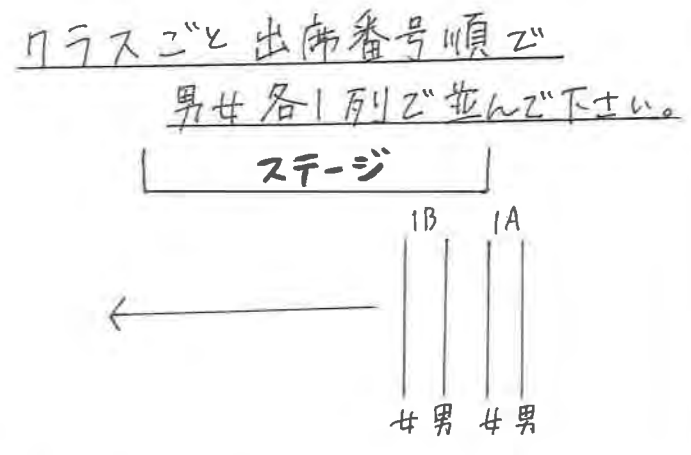 クラスごと出席番号順で
男女各1列で並んで下さい。
ステージ
1B 1A
女 男 女 男